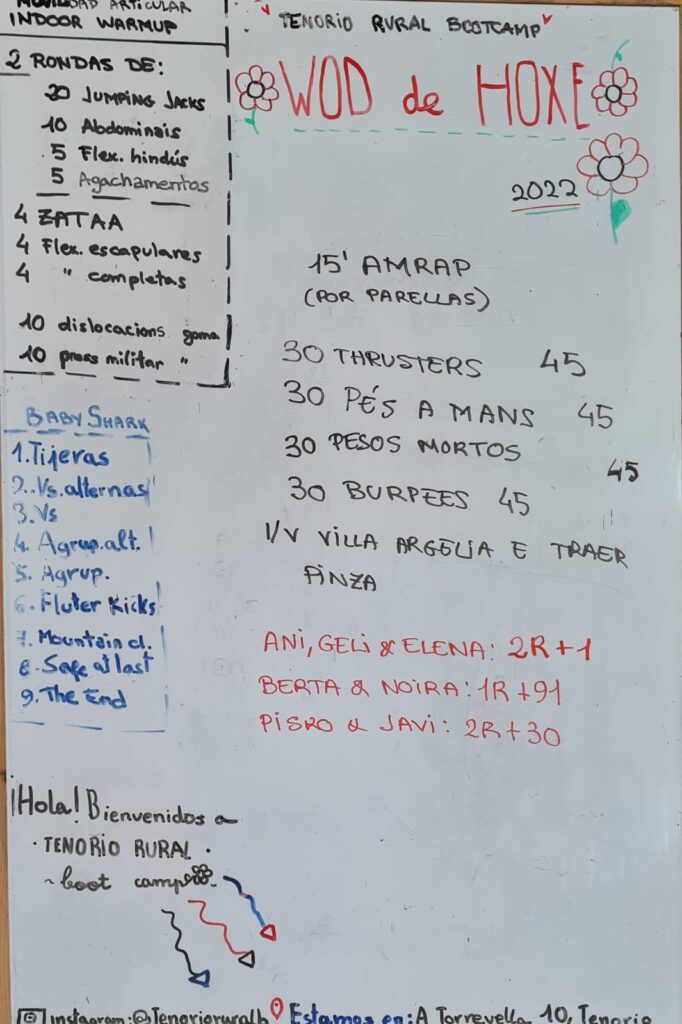 MOVILIDAD ARTICULAR
INDOOR WARMUP
2 RONDAS DE:
20 JUMPING JACKS
10 Abdominais
5 Flex. hindús
5 Agachamentos
4 ZATAA
4 Flex. escapulares
4 " completas
10 dislocacions goma
10 press militar "
BABY SHARK
1. Tijeras
2. Vs. alternas
3. Vs
4. Agrup. alt.
5. Agrup.
6. Fluter Kicks
7. Mountain cl.
8. Safe at last
9. The End
TENORIO RURAL BOOTCAMP
WOD de HOXE
2022
15' AMRAP
(POR PARELLAS)
30 THRUSTERS 45
30 PÉS A MANS 45
30 PESOS MORTOS 45
30 BURPEES 45
I/V VILLA ARGELIA E TRAER
FINZA
ANI, GELI & ELENA: 2R+1
BERTA & NOIRA: 1R+91
PISRO & JAVI: 2R+30
¡Hola! Bienvenidos a
· TENORIO RURAL ·
~ boot camp
instagram: @Tenorioruralb Estamos en: A Torrevella 10, Tenorio